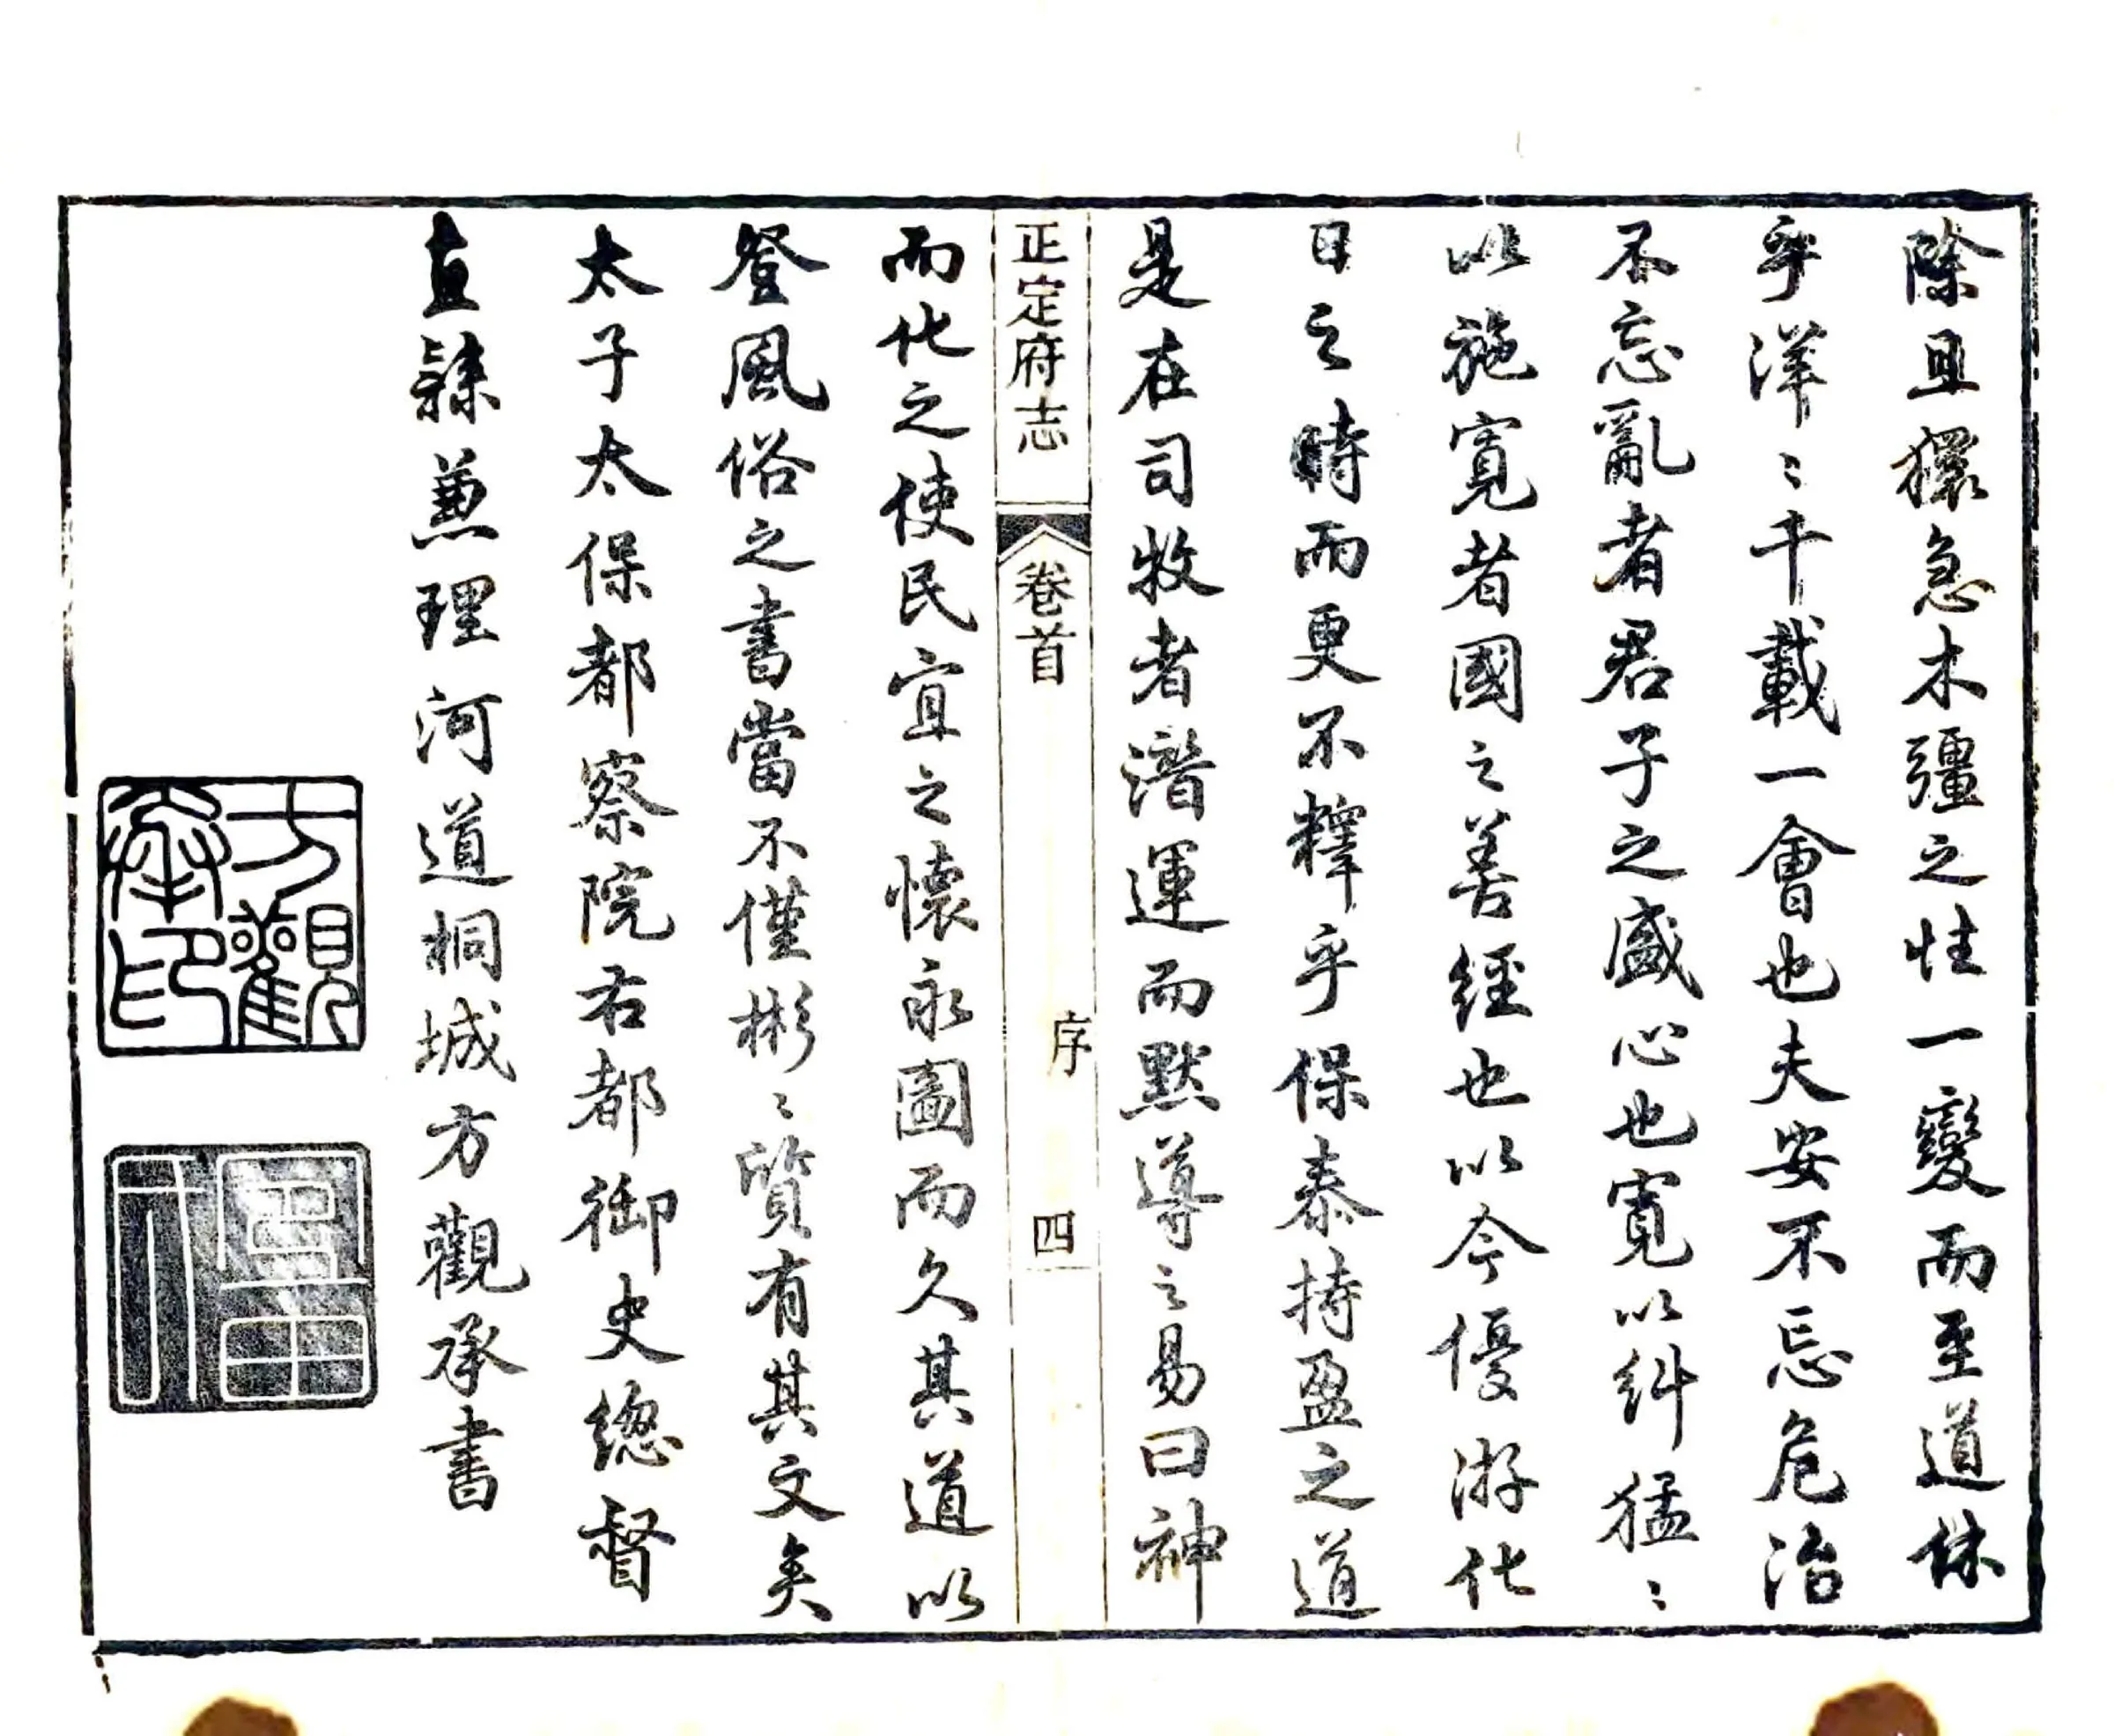 除且獧急木彊之性一變而至道休
乎洋〻千載一會也夫安不忘危治
不忘亂者君子之盛心也寬以糾猛〻
以施寬者國之善經也以今優游化
日之時而更不釋乎保泰持盈之道
是在司牧者潛運而默導之易曰神
正定府志
卷首
序
四
而化之使民宜之懷永圖而久其道以
登風俗之書當不僅彬〻質有其文矣
太子太保都察院右都御史總督
直隸兼理河道桐城方觀承書
方觀承印